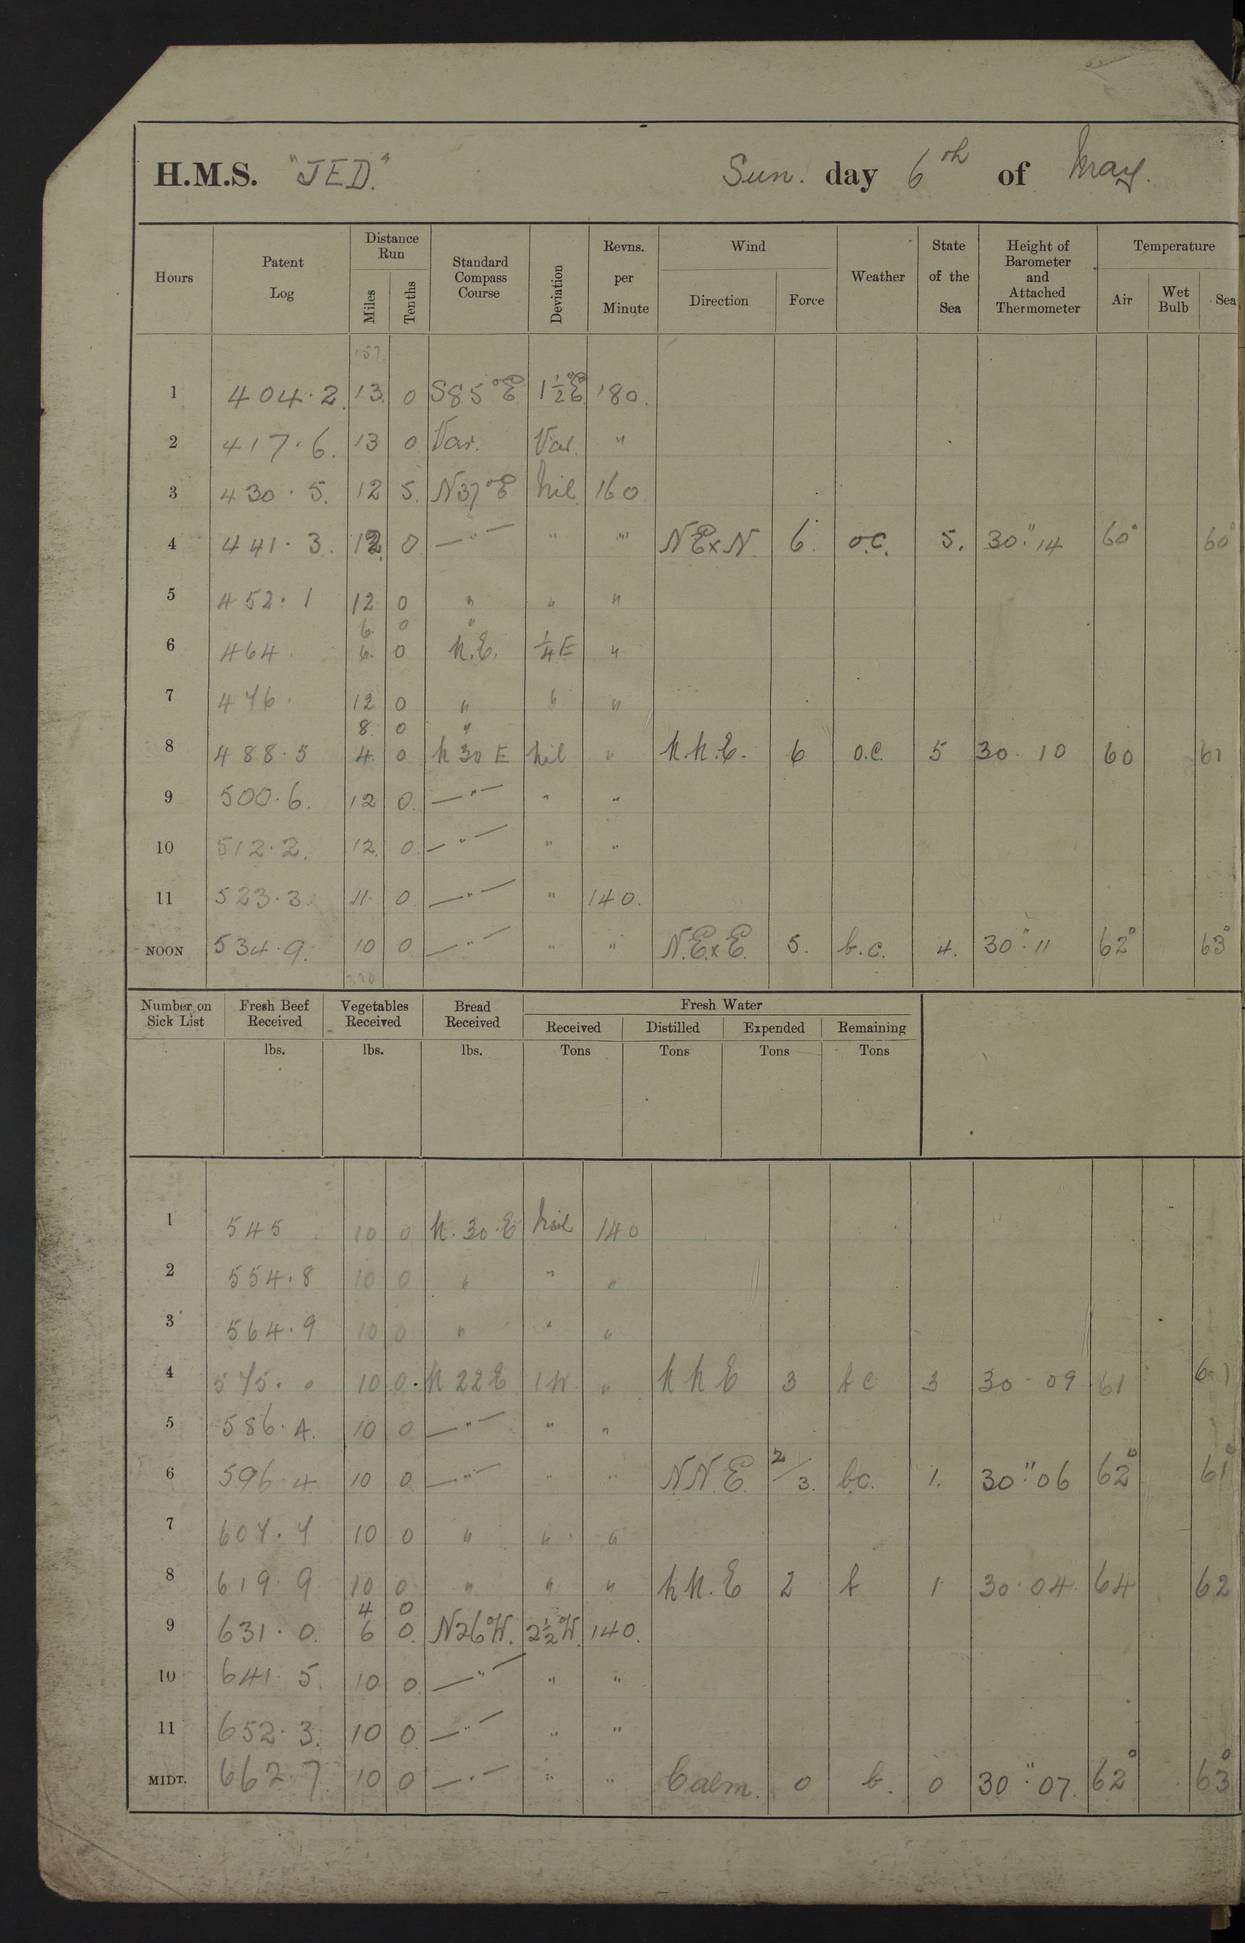 H.M.S. "JED." Sun. day 6th of May.
Hours Patent Log Distance Run Miles Tenths Standard Compass Course Deviation Revns. per Minute Wind Direction Force Weather State of the Sea Height of Barometer and Attached Thermometer Temperature Air Wet Bulb Sea
157
1 404.2 13 0 S85°E 1½°E 180.
2 417.6. 13 0 Var. Var. "
3 430.5. 12 5. N37°E Nil 160
4 441.3. 12 0 —"— " " NExN. 6. o.c. 5. 30."14 60° 60°
5 452.1 12 0 " " "
6 0 "
6 464. 6. 0 N.E. ¼E "
7 476. 12 0 " " "
8 0 "
8 488.5 4 0 N 30 E Nil " N.N.E. 6 o.c. 5 30.10 60 61
9 500.6. 12 0 —"— " "
10 512.2. 12. 0 —"— " "
11 523.3. 11. 0 —"— " 140.
NOON 534.9. 10 0 —"— " " N.E.xE. 5. b.c. 4. 30."11 62° 63°
Number on Sick List Fresh Beef Received Vegetables Received Bread Received Fresh Water
Received Distilled Expended Remaining
lbs. lbs. lbs. Tons Tons Tons Tons
1 545 10 0 N.30.E Nil 140
2 554.8 10 0 " " "
3 564.9 10 0 " " "
4 575.0 10 0. N 22 E 1W " N N E 3 b c 3 30.09 61 61
5 586.4. 10 0 —"— " "
6 596 4 10 0 —"— " " N N E 2/3. b.c. 1. 30"06 62° 61°
7 607.7 10 0 " " "
8 619.9 10 0 " " " N.N.E 2 b 1. 30.04 64 62
4 0
9 631.0. 6 0. N26°W. 2½°W. 140.
10 641.5. 10 0 —"— " "
11 652.3. 10 0 —"— " "
MIDT. 662.7. 10 0 —"— " " Calm. 0 b. 0 30"07. 62° 63°